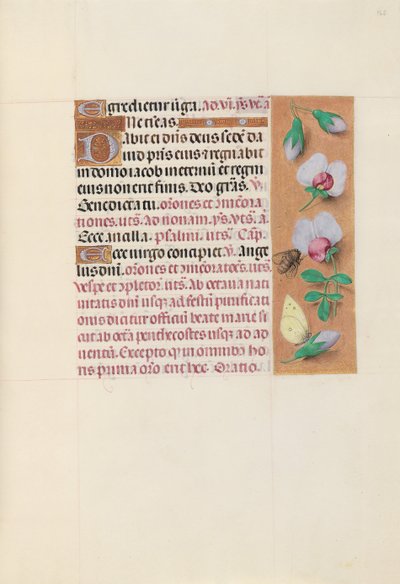 Egredietur v̄ga. ad. vi. ps. vt. a
Ne tieas.
Dabit ei dn̄s deus sedē da
uid pris eius ⁊ regnabit
in domo iacob ineternū et regni
eius non erit finis. Deo gr̄as. V̄
Benedicta tu. or̄ones et m̄emora
tiones. vt s̄. ad nonam. ps. vt s̄. a
Ecce ancilla. psalmi. vt s̄. Cap̄.
Ecce virgo concipiet V̄. Ange
lus dn̄i. or̄ones et m̄emoratoēs. vt s̄.
Vespe et ꝯpletor̄. vt s̄. Ab octaua nati
uitatis dn̄i usqꝫ ad festū purificati
onis dicitur officiū beate marie si
cut ab octā penthecostes usqꝫ ad ad
uentū. Excepto q in omnibꝫ ho
ris prima oro erit hec. Oratio.